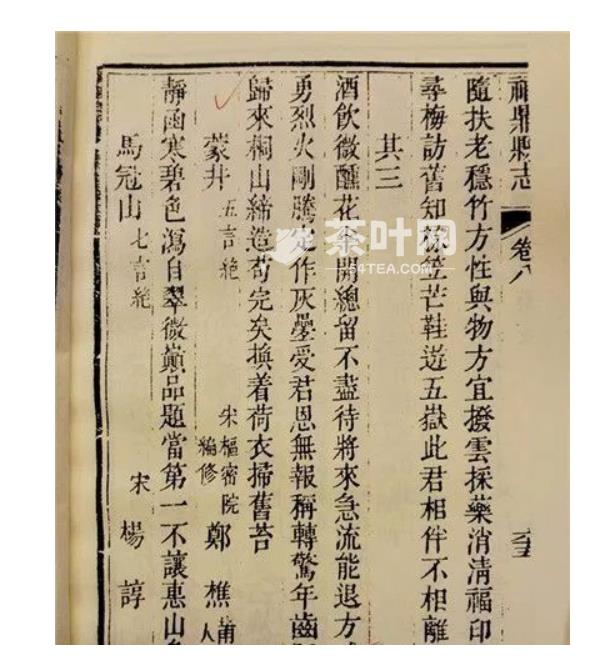 福鼎縣志 卷八
隨扶老穩竹方性與物方宜撥雲採藥消清福印
尋梅訪舊知笠芒鞋遊五嶽此君相伴不相離
其三
酒飲微醺花開總留不盡待將來急流能退方
勇烈火剛騰作灰壘受君恩無報稱轉驚年齒
歸來桐山締造苟完矣換着荷衣掃舊苔
蒙井 五言絕 宋樞密院編修 鄭樵 莆人
靜涵寒碧色瀉自翠微巔品題當第一不讓惠山
馬冠山 七言絕 宋 楊諄
茶叶网
54TEA.COM